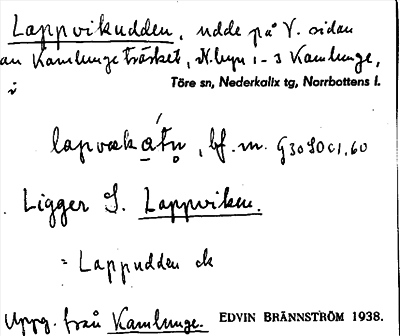 Lappvikudden, udde på V. sidan
av Kamlunge träsket, N. byn 1-3 Kamlunge,
i Töre sn, Nederkalix tg, Norrbottens l.
bf. m.
Ligger S. Lappviken.
= Lappudden ek
Uppg. från Kamlunge. EDVIN BRÄNNSTRÖM 1938.